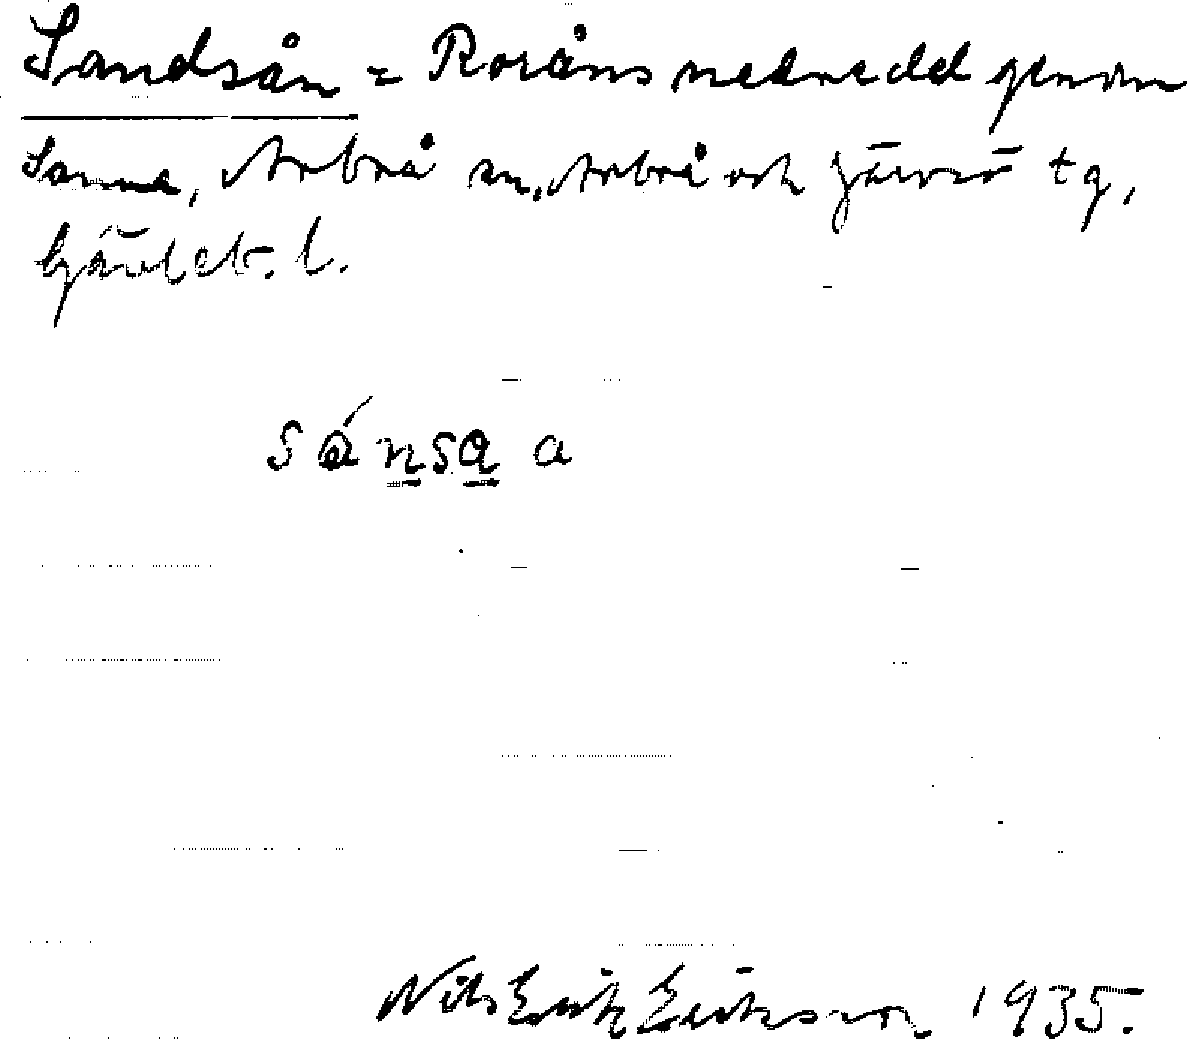 Sandsån = Roråns nedre del genom
Sanna, Arbrå sn, Arbrå och Järvsö tg,
Gävleb. l.
sánsa a
Nils Erik Eriksson 1935.